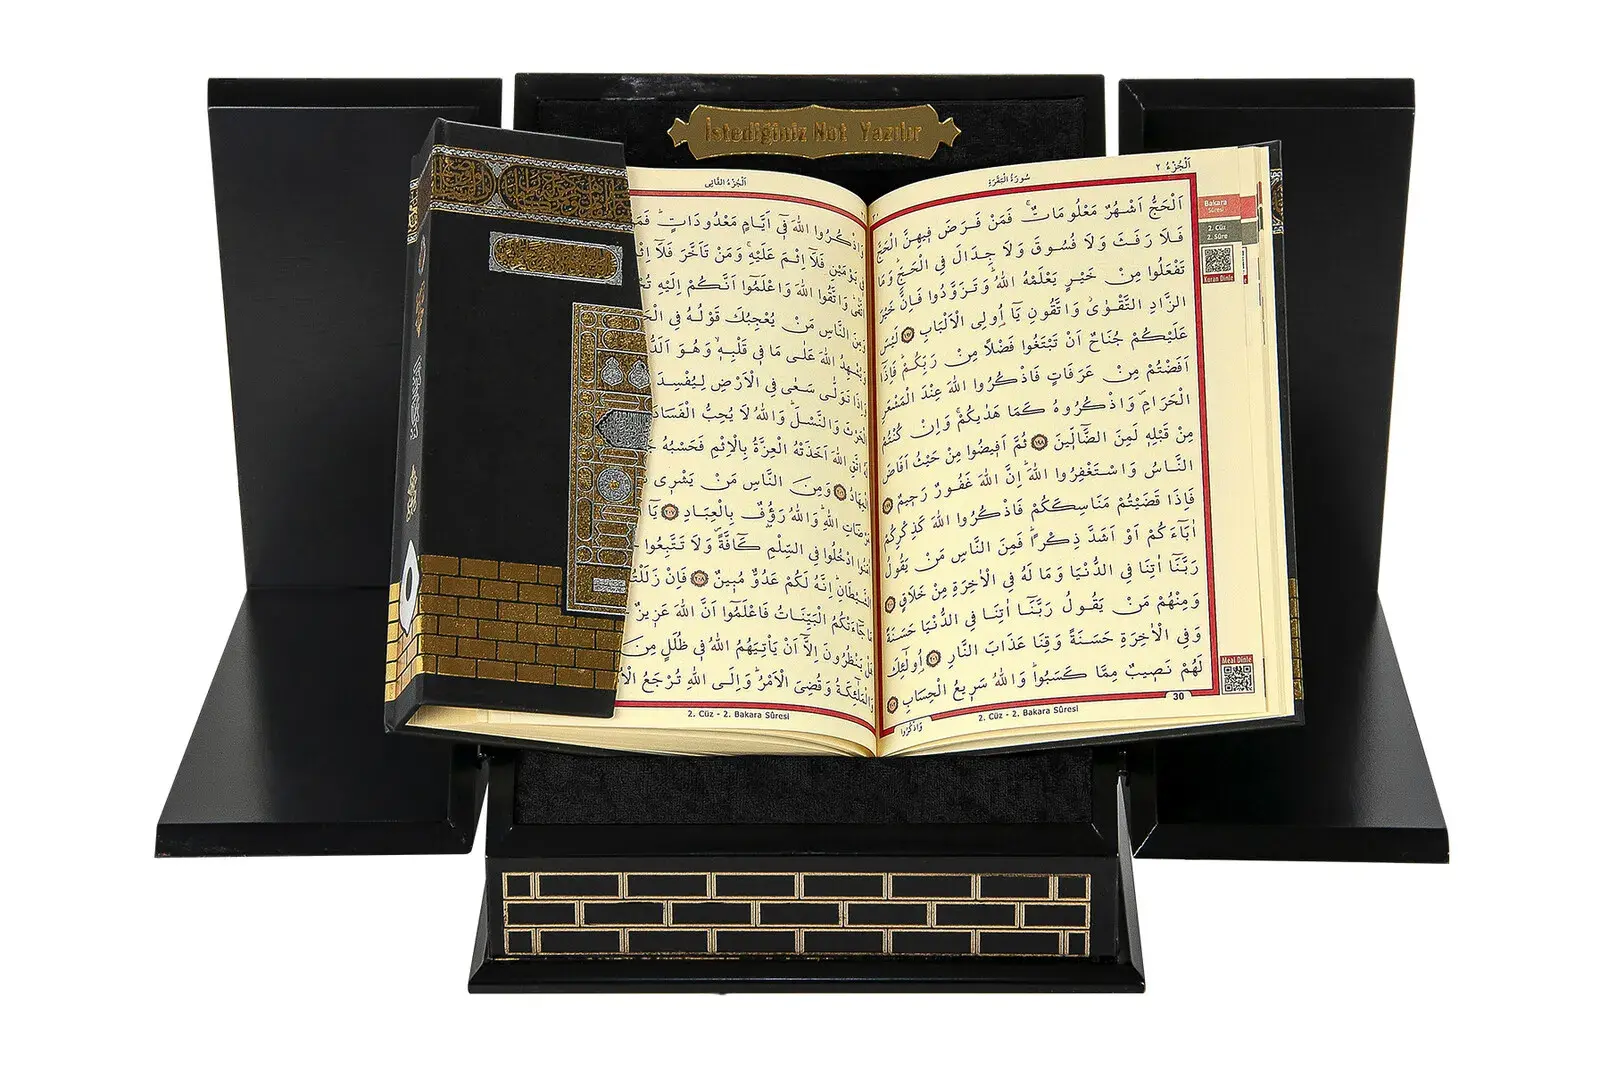 İstediğiniz Not Yazılır
اَلْجُزْءُ ٢
سُورَةُ الْبَقَرَةِ
اَلْحَجُّ اَشْهُرٌ مَعْلُومَاتٌۚ فَمَنْ فَرَضَ فٖيهِنَّ الْحَجَّ
فَلَا رَفَثَ وَلَا فُسُوقَ وَلَا جِدَالَ فِي الْحَجِّؕ وَمَا
تَفْعَلُوا مِنْ خَيْرٍ يَعْلَمْهُ اللّٰهُؕ وَتَزَوَّدُوا فَاِنَّ خَيْرَ
الزَّادِ التَّقْوٰىؗ وَاتَّقُونِ يَٓا اُو۬لِي الْاَلْبَابِ ﴿١٩٧﴾ لَيْسَ
عَلَيْكُمْ جُنَاحٌ اَنْ تَبْتَغُوا فَضْلًا مِنْ رَبِّكُمْؕ فَاِذَٓا
اَفَضْتُمْ مِنْ عَرَفَاتٍ فَاذْكُرُوا اللّٰهَ عِنْدَ الْمَشْعَرِ
الْحَرَامِؕ وَاذْكُرُوهُ كَمَا هَدٰيكُمْۚ وَاِنْ كُنْتُمْ
مِنْ قَبْلِهٖ لَمِنَ الضَّٓالّٖينَ ﴿١٩٨﴾ ثُمَّ اَفٖيضُوا مِنْ حَيْثُ اَفَاضَ
النَّاسُ وَاسْتَغْفِرُوا اللّٰهَؕ اِنَّ اللّٰهَ غَفُورٌ رَحٖيمٌ ﴿١٩٩﴾
فَاِذَا قَضَيْتُمْ مَنَاسِكَكُمْ فَاذْكُرُوا اللّٰهَ كَذِكْرِكُمْ
اٰبَٓاءَكُمْ اَوْ اَشَدَّ ذِكْرًاؕ فَمِنَ النَّاسِ مَنْ يَقُولُ
رَبَّنَٓا اٰتِنَا فِي الدُّنْيَا وَمَا لَهُ فِي الْاٰخِرَةِ مِنْ خَلَاقٍ ﴿٢٠٠﴾
وَمِنْهُمْ مَنْ يَقُولُ رَبَّنَٓا اٰتِنَا فِي الدُّنْيَا حَسَنَةً
وَفِي الْاٰخِرَةِ حَسَنَةً وَقِنَا عَذَابَ النَّارِ ﴿٢٠١﴾ اُو۬لٰٓئِكَ
لَهُمْ نَصٖيبٌ مِمَّا كَسَبُواؕ وَاللّٰهُ سَرٖيعُ الْحِسَابِ ﴿٢٠٢﴾
30
2. Cüz - 2. Bakara Sûresi
وَاذْكُرُوا
Bakara
Sûresi
2. Cüz
2. Sûre
Kuran Dinle
Meal Dinle
اَلْجُزْءُ الثَّانٖي
وَاذْكُرُوا اللّٰهَ فٖٓي اَيَّامٍ مَعْدُودَاتٍؕ
فٖي يَوْمَيْنِ فَلَٓا اِثْمَ عَلَيْهِۚ وَمَنْ تَاَخَّرَ فَلَٓا
اتَّقٰىؕ وَاتَّقُوا اللّٰهَ وَاعْلَمُٓوا اَنَّكُمْ اِلَيْهِ
وَمِنَ النَّاسِ مَنْ يُعْجِبُكَ قَوْلُهُ فِي
وَيُشْهِدُ اللّٰهَ عَلٰى مَا فٖي قَلْبِهٖۙ وَهُوَ
وَاِذَا تَوَلّٰى سَعٰى فِي الْاَرْضِ لِيُفْسِدَ
الْحَرْثَ وَالنَّسْلَؕ وَاللّٰهُ لَا يُحِبُّ الْفَسَادَ
اتَّقِ اللّٰهَ اَخَذَتْهُ الْعِزَّةُ بِالْاِثْمِ فَحَسْبُهُ
الْمِهَادُ ﴿٢٠٦﴾ وَمِنَ النَّاسِ مَنْ يَشْرٖي
مَرْضَاتِ اللّٰهِؕ وَاللّٰهُ رَؤُ۫فٌ بِالْعِبَادِ ﴿٢٠٧﴾
اٰمَنُوا ادْخُلُوا فِي السِّلْمِ كَٓافَّةًࣕ وَلَا تَتَّبِعُوا
الشَّيْطَانِؕ اِنَّهُ لَكُمْ عَدُوٌّ مُبٖينٌ ﴿٢٠٨﴾ فَاِنْ
مَا جَٓاءَتْكُمُ الْبَيِّنَاتُ فَاعْلَمُٓوا اَنَّ اللّٰهَ عَزٖيزٌ
هَلْ يَنْظُرُونَ اِلَّٓا اَنْ يَأْتِيَهُمُ اللّٰهُ فٖي ظُلَلٍ مِنَ
وَالْمَلٰٓئِكَةُ وَقُضِيَ الْاَمْرُؕ وَاِلَى اللّٰهِ تُرْجَعُ
2. Cüz - 2. Bakara Sûresi